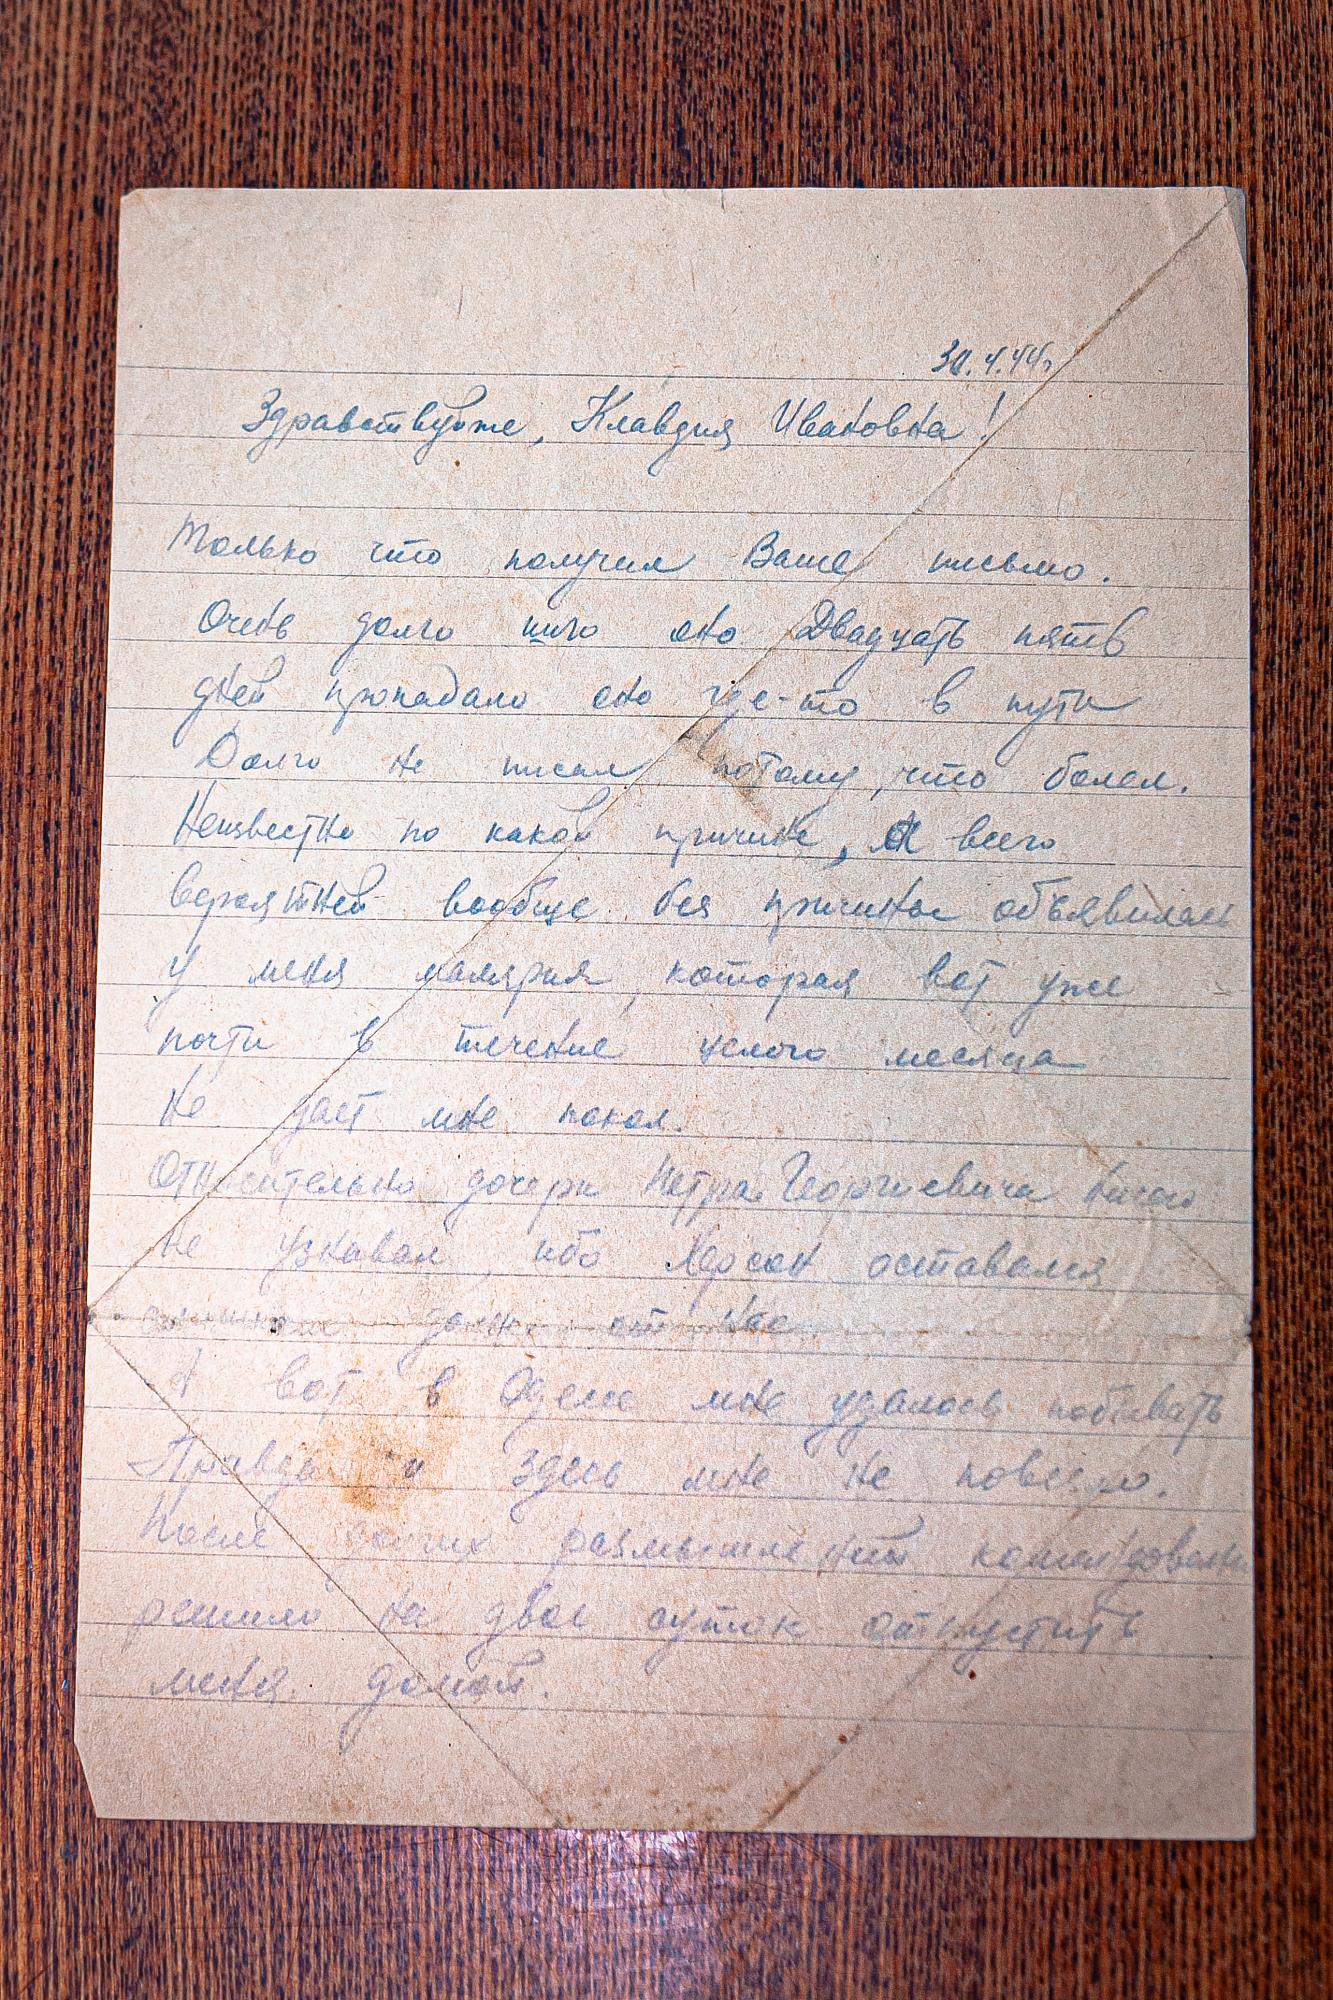 30.4.44г.
Здравствуйте, Клавдия Ивановна!
Только что получил Ваше письмо.
Очень долго шло оно Двадцать пять
дней пропадало оно где-то в пути
Долго не писал потому, что болел.
Неизвестно по какой причине, а всего
вероятней вообще без причины объявилась
у меня малярия, которая вот уже
почти в течение целого месяца
не дает мне покоя.
Относительно дочери Петра Георгиевича ничего
не узнавал, ибо Херсон оставался
далеко от нас.
А вот в Одессе мне удалось побывать
Правда и здесь мне не повезло.
После долгих размышлений командование
решило на двое суток отпустить
меня домой.